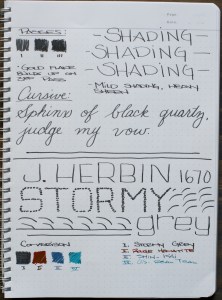 PASSES
I II III
-SHADING-
-SHADING-
-SHADING-
•GOLD FLAKE
BUILDS UP ON
3RD PASS.
-MILD SHADING, HEAVY
SHEEN
Cursive:
Sphinx of black quartz,
judge my vow.
J. HERBIN 1670
STORMY
grey
COMPARISON
I II III IV
I. STORMY GREY
II. ROUGE HEMATITE